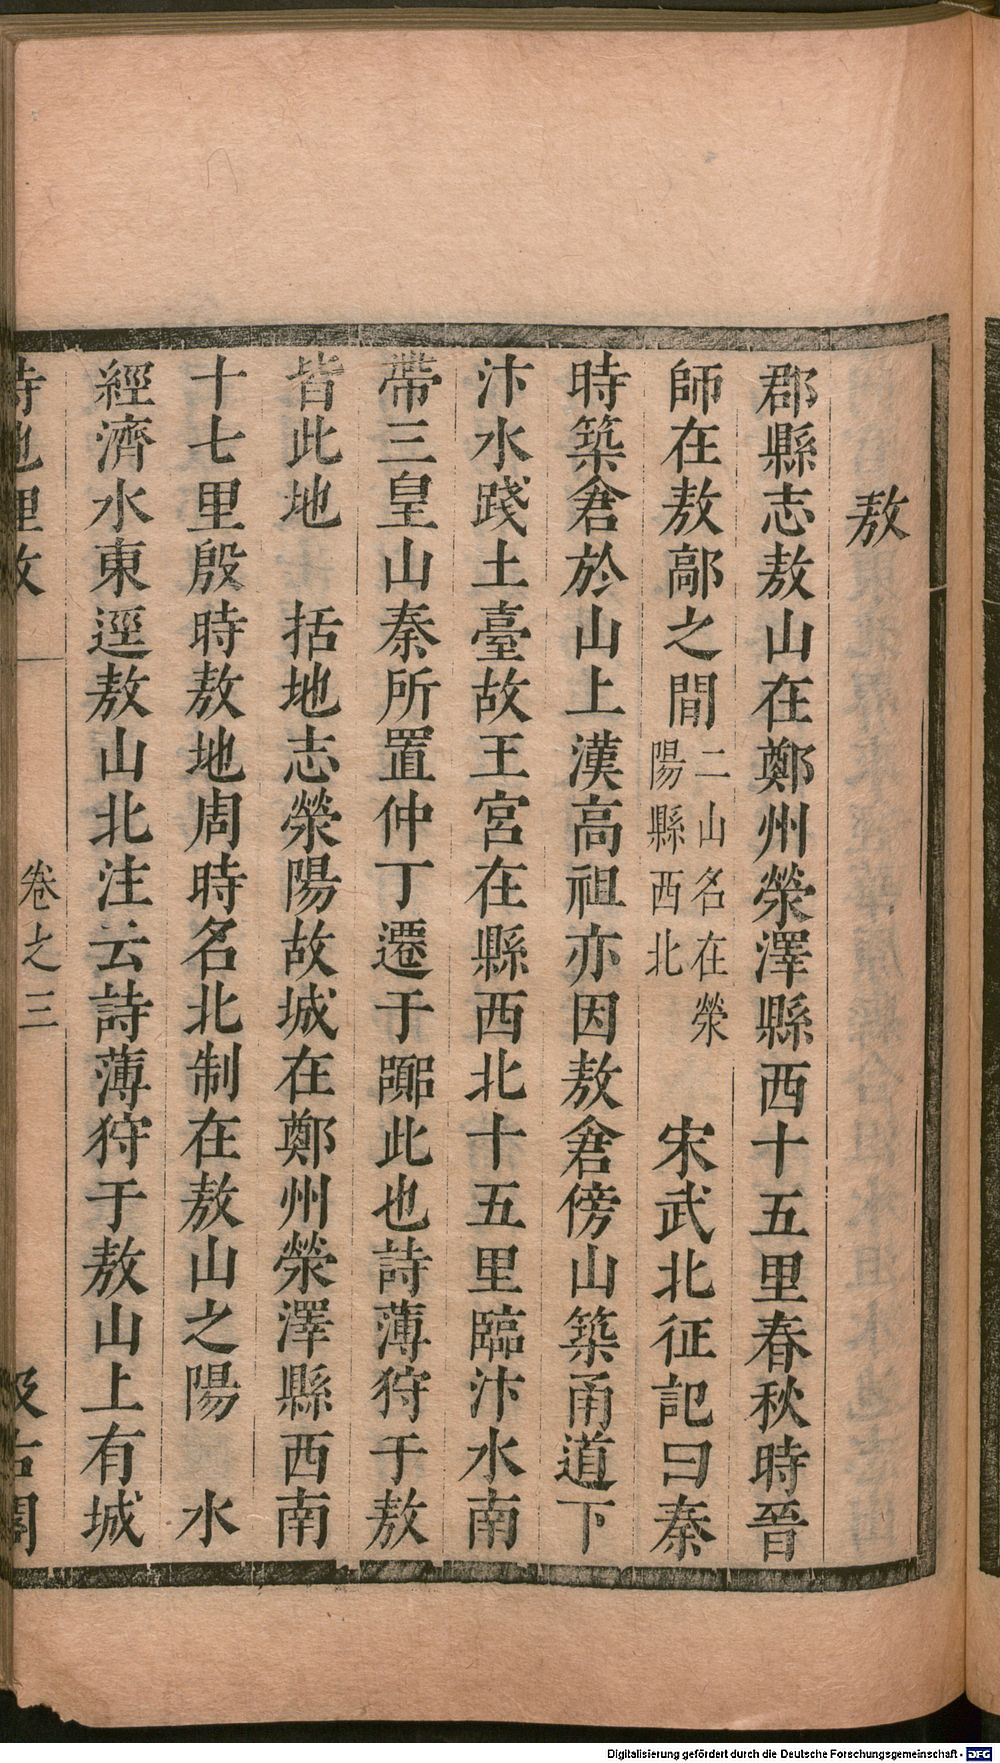 敖
郡縣志敖山在鄭州滎澤縣西十五里春秋時晉
師在敖鄗之間二山名在滎陽縣西北 宋武北征記曰秦
時築倉於山上漢高祖亦因敖倉傍山築甬道下
汴水踐土臺故王宮在縣西北十五里臨汴水南
帶三皇山秦所置仲丁遷于䣙此也詩薄狩于敖
皆此地 括地志滎陽故城在鄭州滎澤縣西南
十七里殷時敖地周時名北制在敖山之陽 水
經濟水東逕敖山北注云詩薄狩于敖山上有城
詩地理攷 卷之三 汲古閣
Digitalisierung gefördert durch die Deutsche Forschungsgemeinschaft - DFG